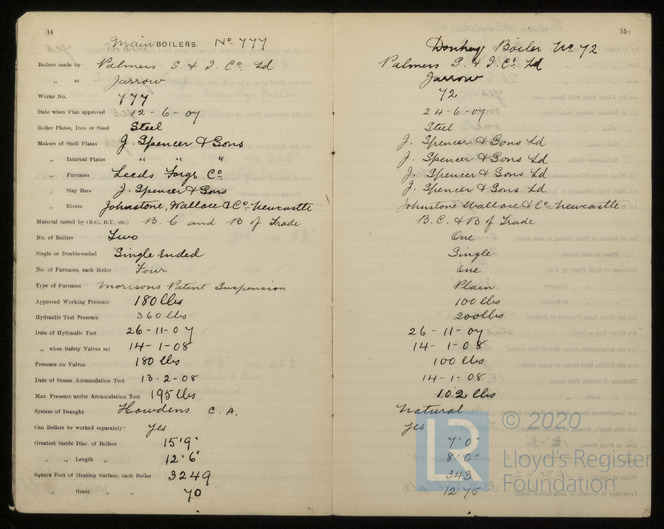 14
Main BOILERS. No 777
Boilers made by Palmers S & I. Co Ld
„ at Jarrow
Works No. 777
Date when Plan approved 12-6-07
Boiler Plates, Iron or Steel Steel
Makers of Shell Plates J. Spencer & Sons
„ Internal Plates „ „ „
„ Furnaces Leeds Forge Co
„ Stay Bars J. Spencer & Sons
„ Rivets Johnstone, Wallace & Co Newcastle
Material tested by (B.C., B.T., etc.) B. C and B of Trade
No. of Boilers Two
Single or Double-ended Single Ended
No. of Furnaces, each Boiler Four
Type of Furnaces Morisons Patent Suspension
Approved Working Pressure 180 lbs
Hydraulic Test Pressure 360 lbs
Date of Hydraulic Test 26-11-07
„ when Safety Valves set 14-1-08
Pressure on Valves 180 lbs
Date of Steam Accumulation Test 13-2-08
Max. Pressure under Accumulation Test 195 lbs
System of Draught Howdens C. A.
Can Boilers be worked separately? Yes
Greatest Inside Diar. of Boilers 15'9"
„ „ Length „ 12'6"
Square Feet of Heating Surface, each Boiler 3249
„ Grate „ „ 70
15
Donkey Boiler No 72
Palmers S. & I. Co Ld
Jarrow
72
24-6-07
Steel
J. Spencer & Sons Ld
J. Spencer & Sons Ld
J. Spencer & Sons Ld
J. Spencer & Sons Ld
Johnstone Wallace & Co Newcastle
B.C. & B of Trade
One
Single
One
Plain
100 lbs
200 lbs
26-11-07
14-1-08
100 lbs
14-1-08
102 lbs
Natural
Yes
7'0"
8'0"
343
12'75
LR © 2020
Lloyd's Register
Foundation